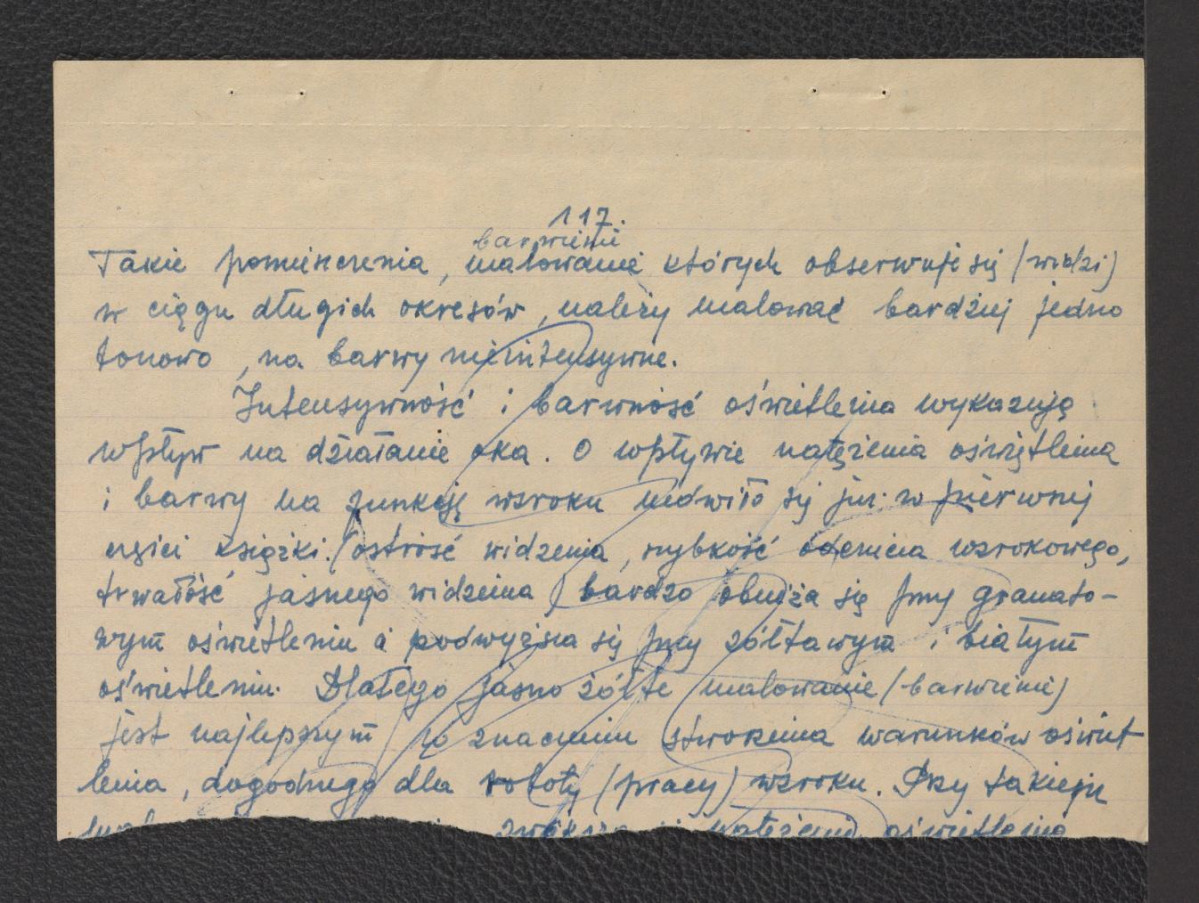 117.
barwienie
Takie pomieszczenia, malowanie których obserwuje się (widzi)
w ciągu długich okresów, należy malować bardziej jedno
tonowo, na barwy nieintensywne.
Intensywność i barwność oświetlenia wykazują
wpływ na działanie oka. O wpływie natężenia oświetlenia
i barwy na funkcję wzroku mówiło się już w pierwszej
części książki. (ostrość widzenia, szybkość odczucia wzrokowego,
trwałość jasnego widzenia) bardzo obniża się przy granato-
wym oświetleniu a podwyższa się przy żółtawym i białym
oświetleniu. Dlatego jasno żółte malowanie (barwienie)
jest najlepszym w znaczeniu stworzenia warunków oświet
lenia, dogodnego dla roboty (pracy) wzroku. Przy takiem
natężenie oświetlenia